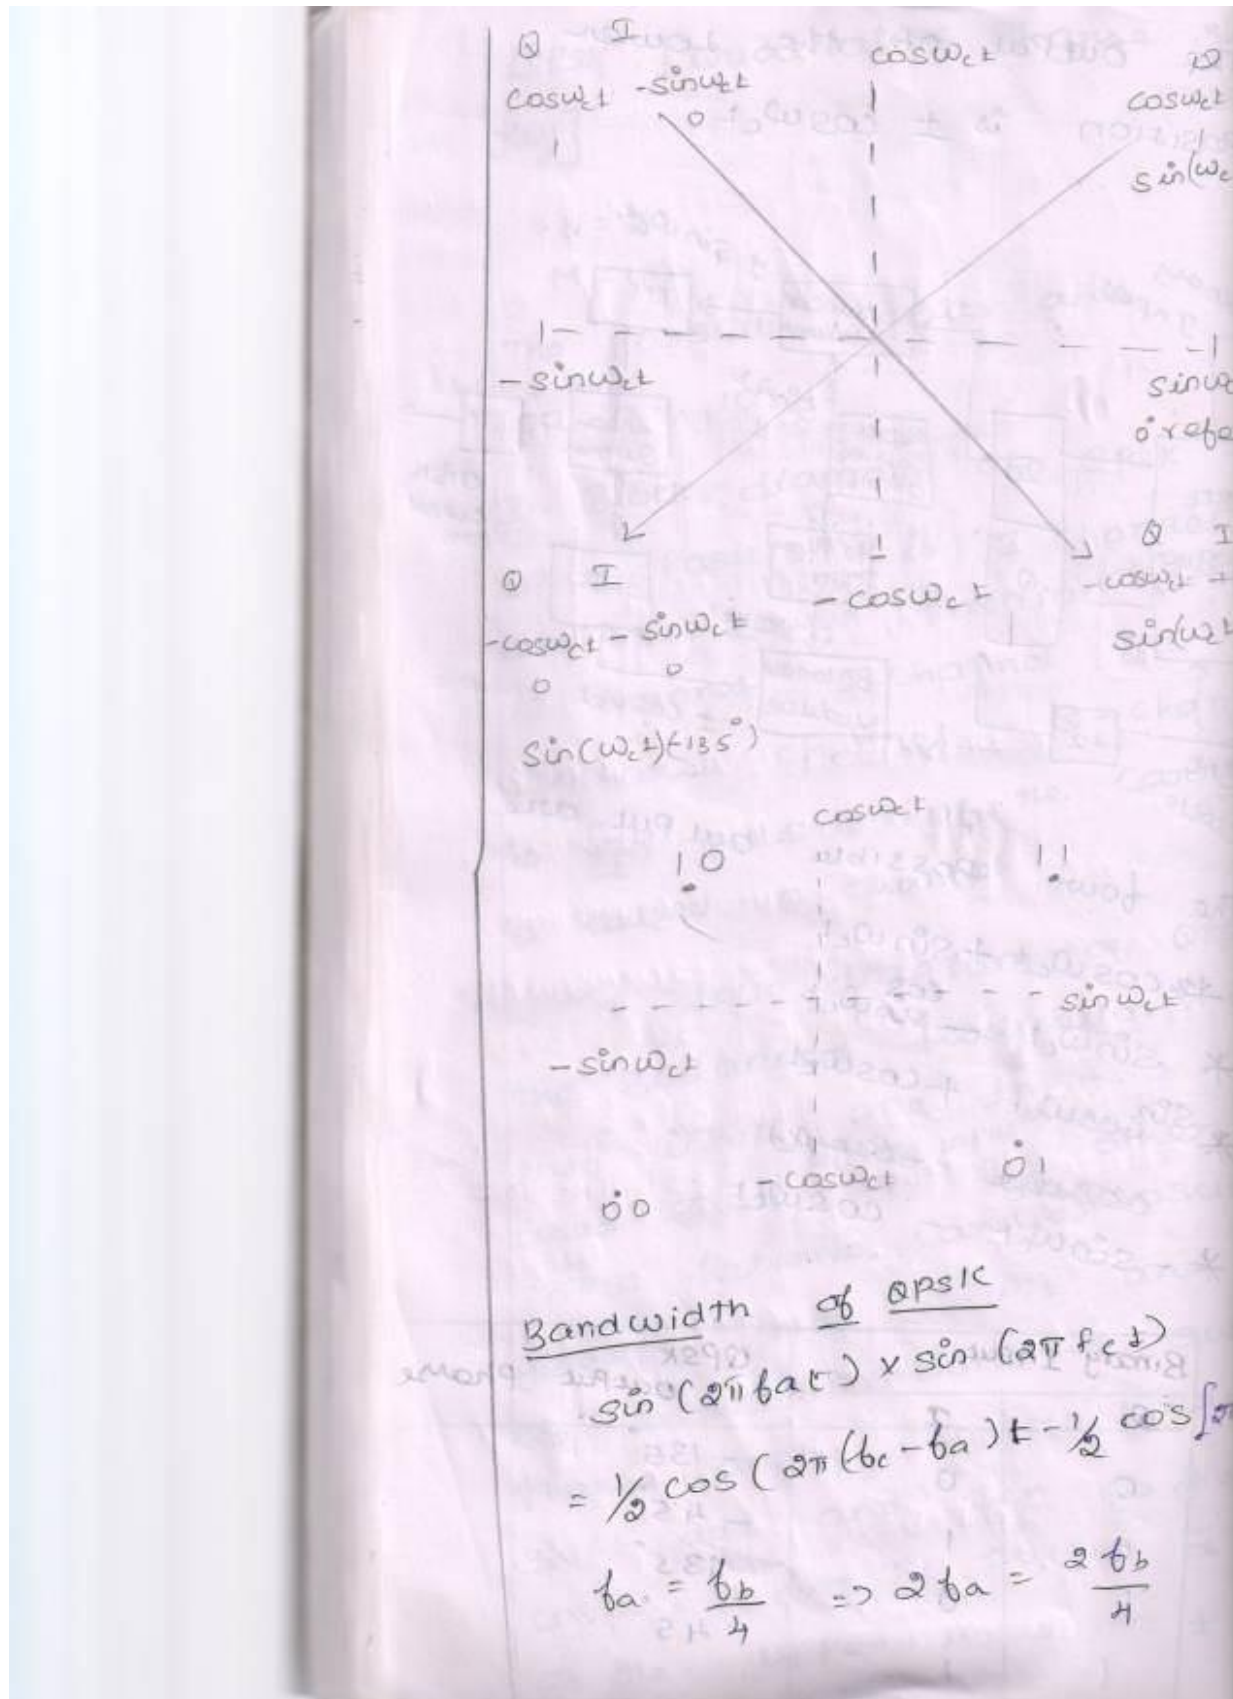 Q I
cosωct
Q
cosωct -sinωct
cosωct
1 0
sin(ωc
-sinωct
sinωc
0° refe
Q I
Q I
-cosωct
-cosωct +
-cosωct - sinωct
1
sin(ωct
0 0
sin(ωct)(-135°)
cosωct
10
11
sinωct
-sinωct
-cosωct
01
00
Bandwidth of QPSK
sin(2πfat) x sin(2πfct)
= 1/2 cos(2π(fc-fa)t - 1/2 cos[2π
fa = fb/4 => 2fa = 2fb/4